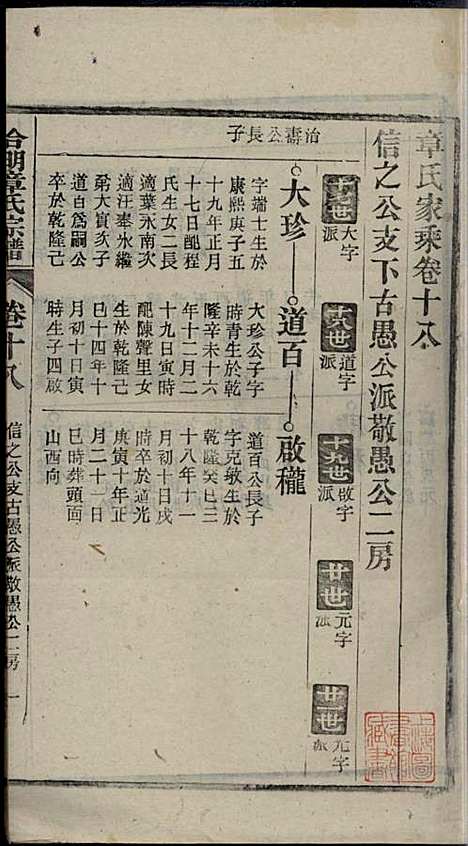 章氏家乘卷十八
信之公支下古愚公派敬愚公二房
十七世 大字派
十八世 道字派
十九世 啟字派
廿世 元字派
廿一世
治壽公長子
大珍
道百
啟穠
字端士生於
康熙庚子五
十九年正月
十七日配程
氏生女二長
適葉永南次
適汪奉氷繼
弟大寅次子
道百為嗣公
卒於乾隆己
大珍公子字
時青生於乾
隆辛未十六
年十二月二
十九日寅時
配陳聲里女
生於乾隆己
巳十四年十
月初十日寅
時生子四啟
道百公長子
字克敏生於
乾隆癸巳三
十八年十一
月初十日戌
時卒於道光
庚寅十年正
月二十一日
巳時葬頭面
山酉向
章氏宗譜
卷十八
信之公支古愚公派敬愚公二房 一
上海圖書館藏書